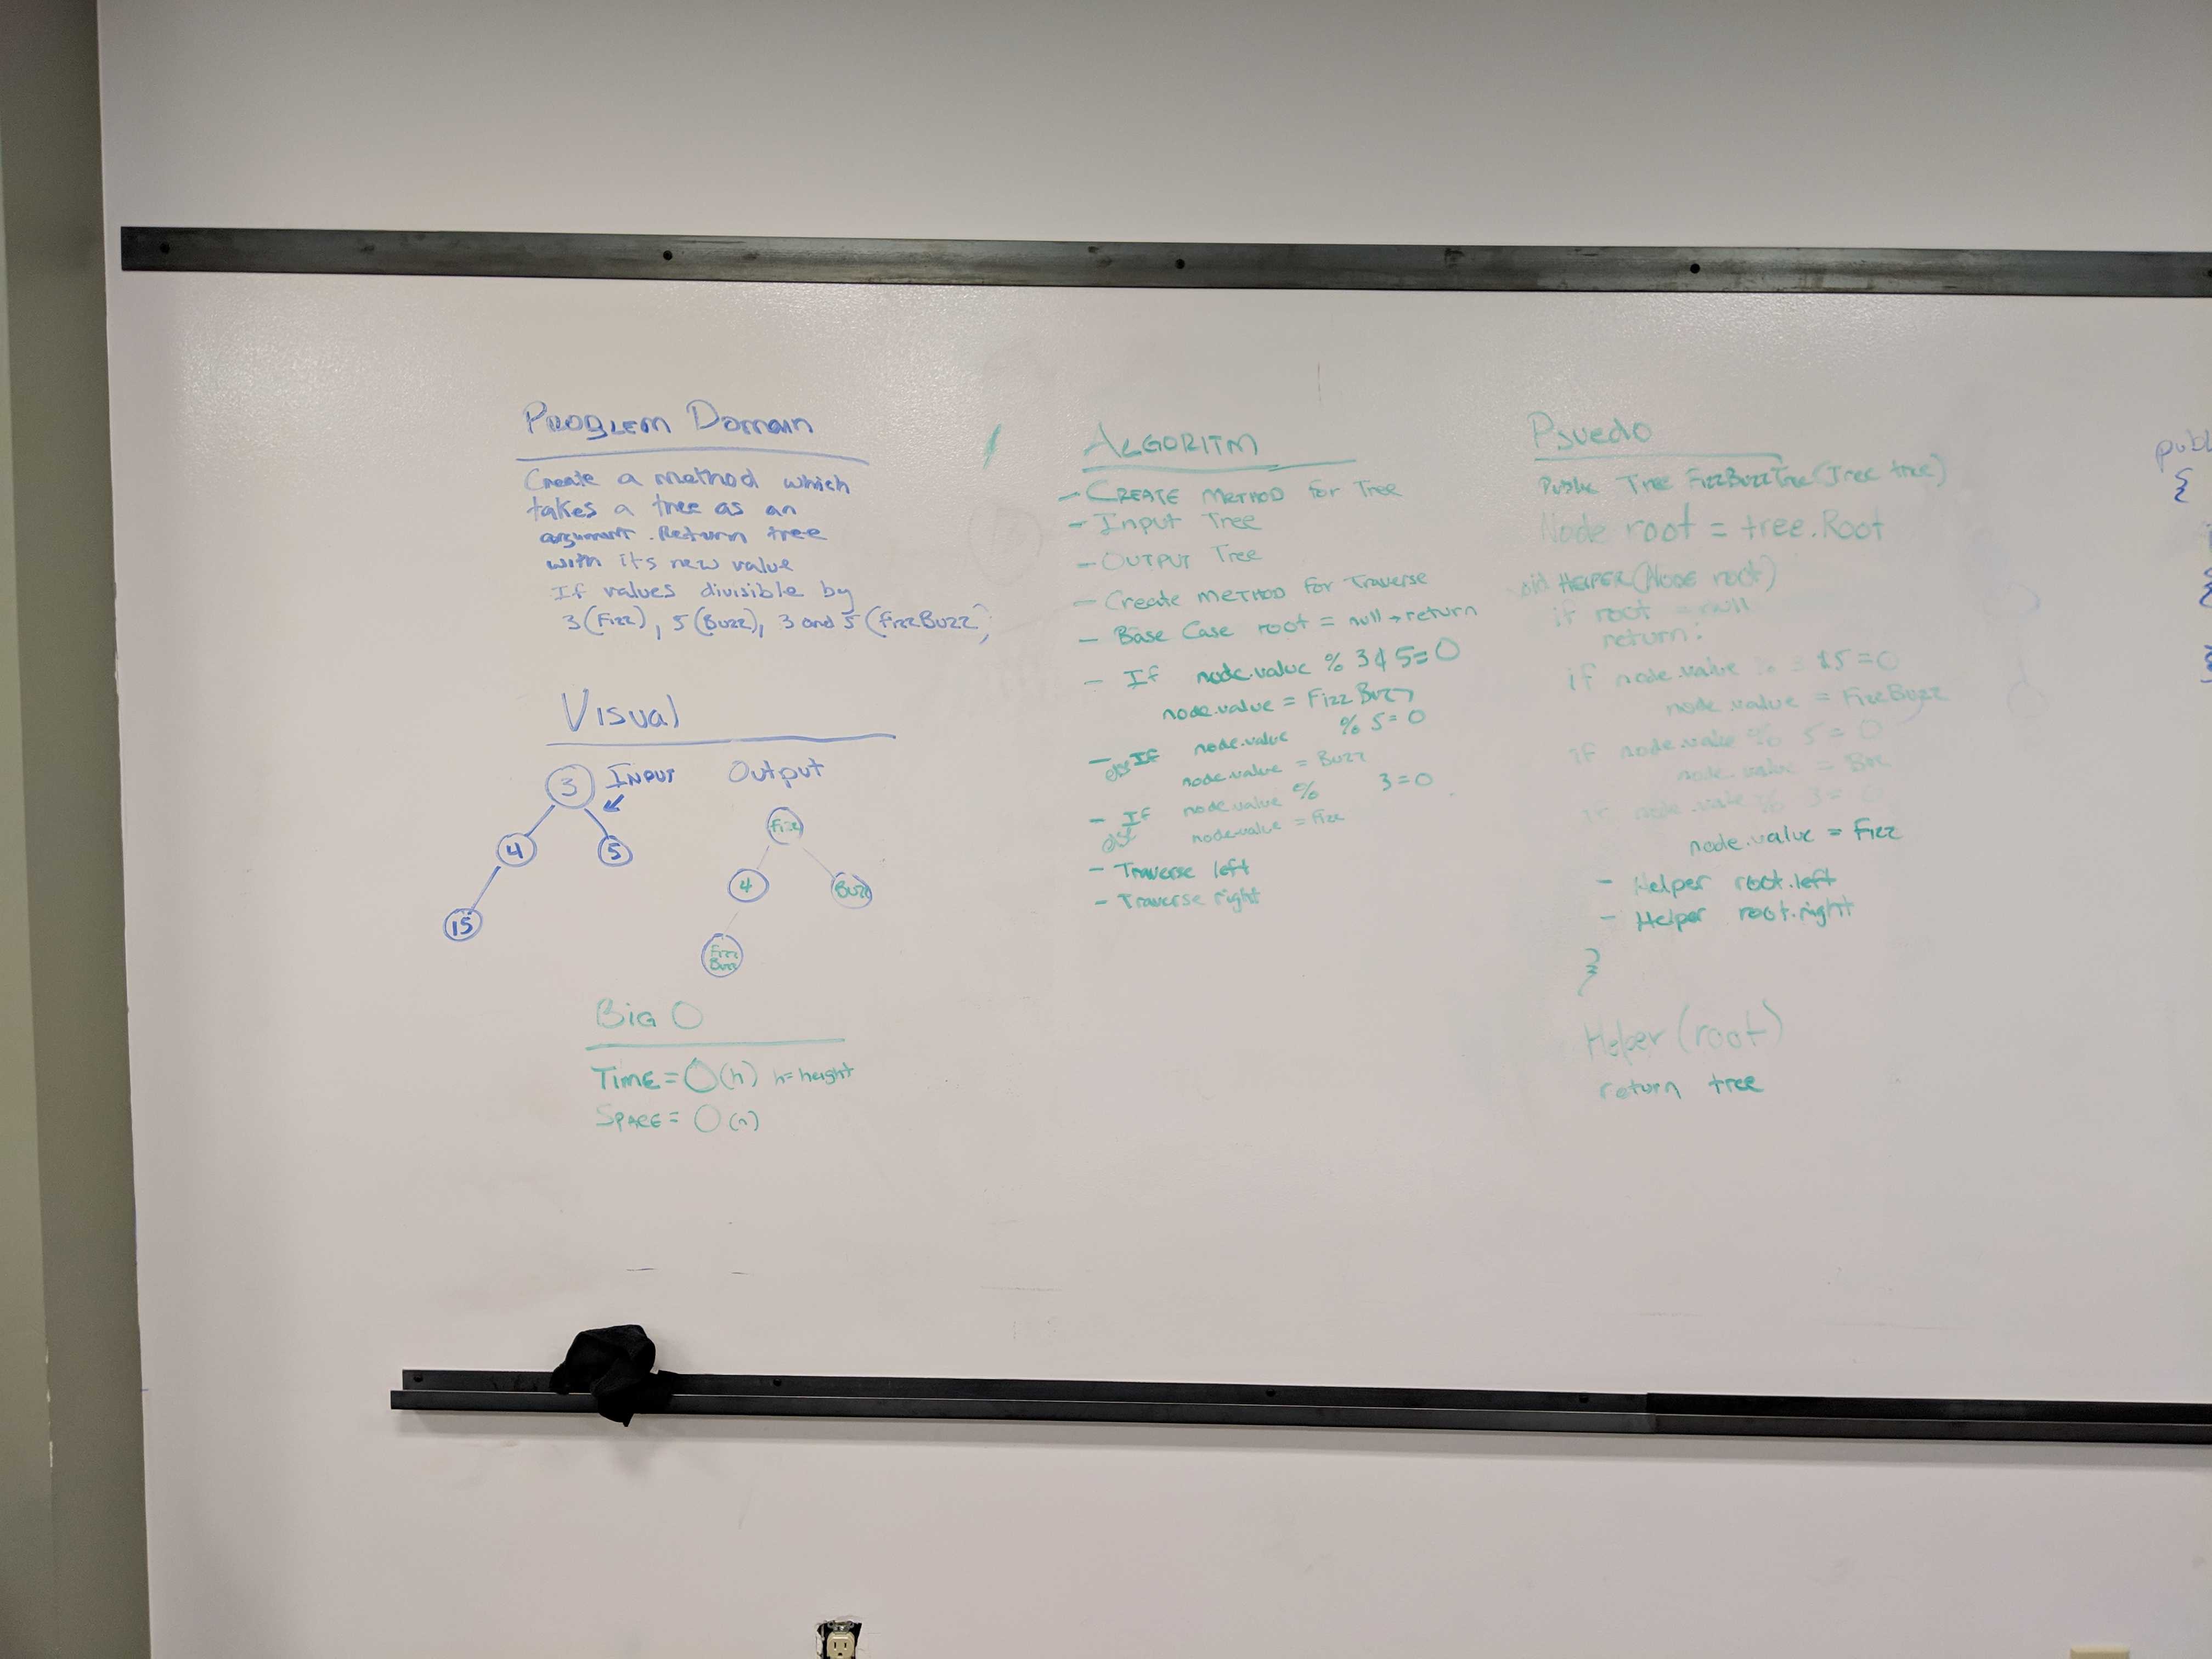 Problem Domain
Create a method which
takes a tree as an
argument. Return tree
with its new value
If values divisible by
3 (Fizz), 5 (Buzz), 3 and 5 (FizzBuzz)
Visual
INPUT Output
3
4
5
15
Fizz
4
Buzz
Fizz
Buzz
BIG O
TIME = O(h) h = height
SPACE = O(n)
ALGORITM
- CREATE METHOD for Tree
- Input Tree
- OUTPUT Tree
- Create METHOD for Traverse
- Base Case root = null → return
- If node.value % 3 & 5 = 0
node.value = FizzBuzz
- else If node.value % 5 = 0
node.value = Buzz
- else If node.value % 3 = 0
node.value = Fizz
- Traverse left
- Traverse right
Psuedo
Public Tree FizzBuzzTree(Tree tree)
Node root = tree.Root
HELPER(NODE root)
if root = null
return;
if node.value % 15 = 0
node.value = FizzBuzz
if node.value % 5 = 0
node.value =
if node.value % 3 = 0
node.value = Fizz
- Helper root.left
- Helper root.right
}
Helper (root)
return tree
publ
{